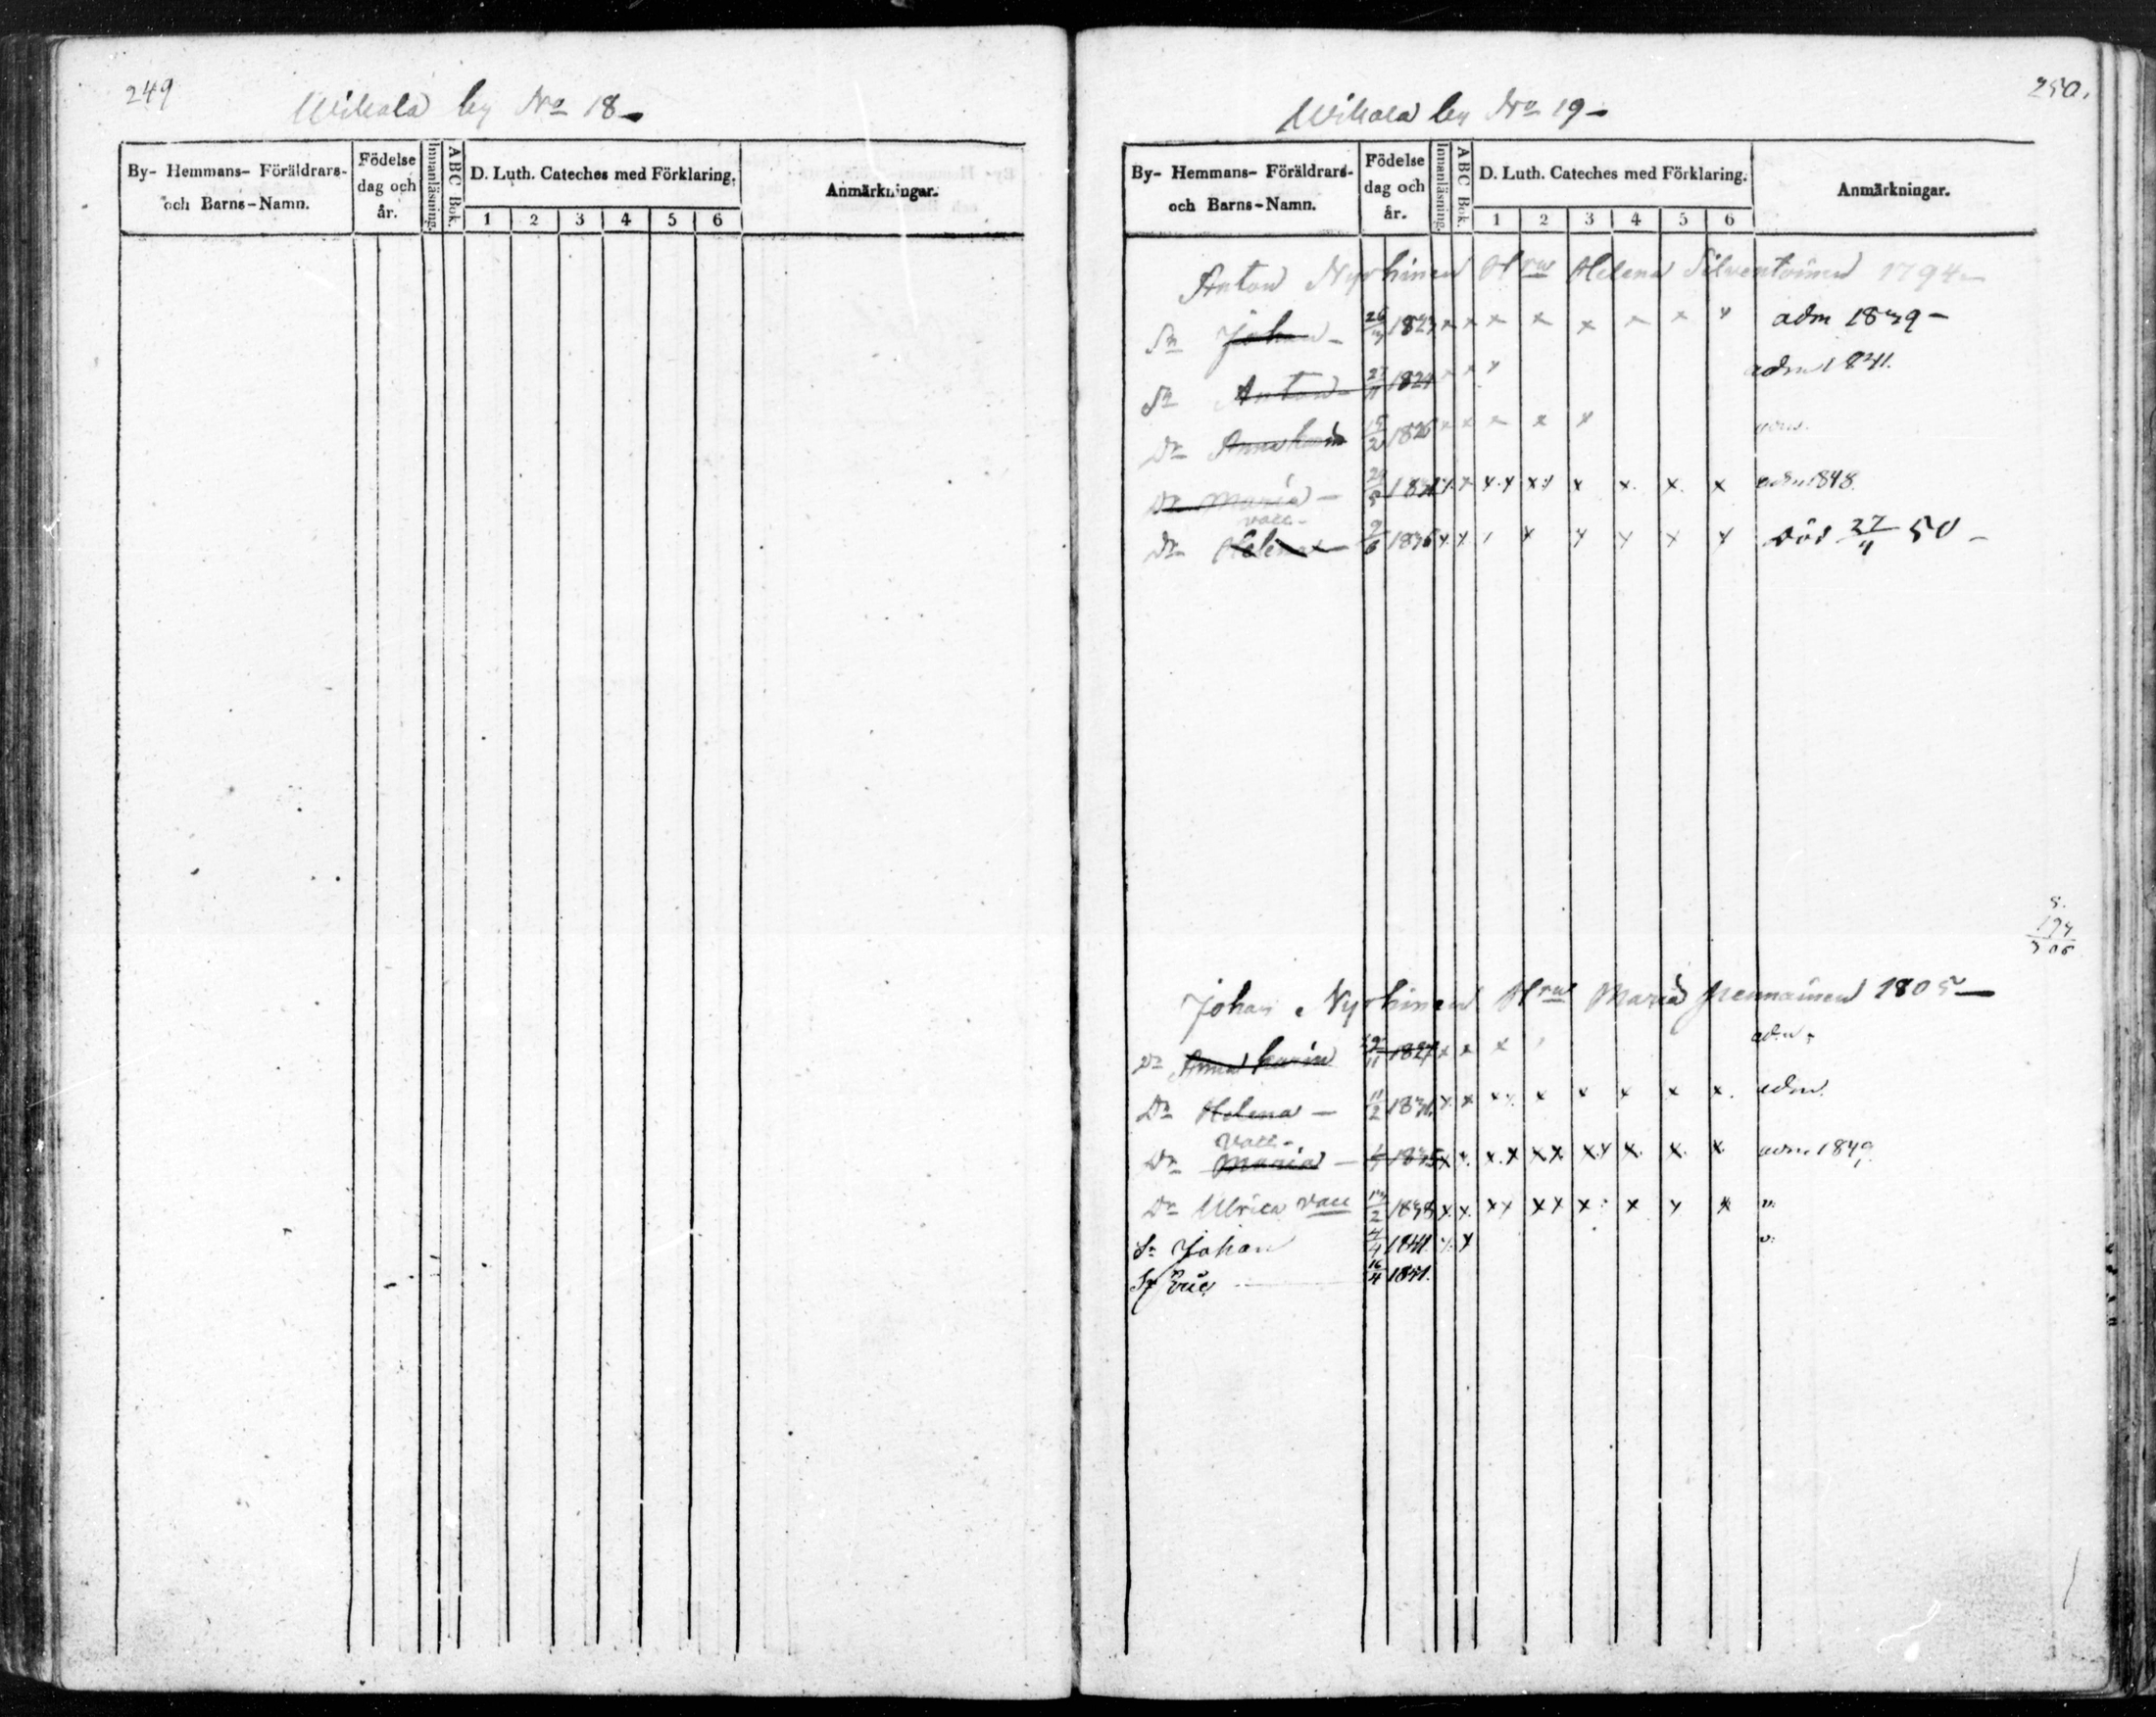 249
Wihola by No 18 -
By- Hemmans- Föräldrars- och Barns-Namn.
Födelse dag och år.
Innanläsning.
ABC Bok.
D. Luth. Cateches med Förklaring.
1 2 3 4 5 6
Anmärkningar.
250.
Wihola by No 19 -
By- Hemmans- Föräldrars- och Barns-Namn.
Födelse dag och år.
Innanläsning.
ABC Bok.
D. Luth. Cateches med Förklaring.
1 2 3 4 5 6
Anmärkningar.
Anton Nyrhinen Hru Helena Silventoinen 1794 -
Sn Johan - 26/3 1823 x x x x x x x x adm 1839 -
Sn Anton - 27/11 1824 x x x adm 1841.
Dr Anna Karin 15/2 1826 x x x x x
Dr Maria - 29/5 1831 x x x x x x x x x x adm 1848.
vacc.
Dr Helena - 9/6 1836 x x x x x x x x död 27/4 50 -
Johan Nyrhinen Hru Maria Pennainen 1805 -
Dr Anna Karin 29/11 1827 x x x adm.
Dr Helena - 11/2 1831 x x x x x x x x x. adm.
vacc.
Dr Maria - 1835 x x. x x x x x x x. x. x. adm 1849.
Dr Ulrica vacc 13/2 1838 x x. x x x x x x x x "
Sn Johan 4/4 1841. x x
Sn Eric 16/4 1851.